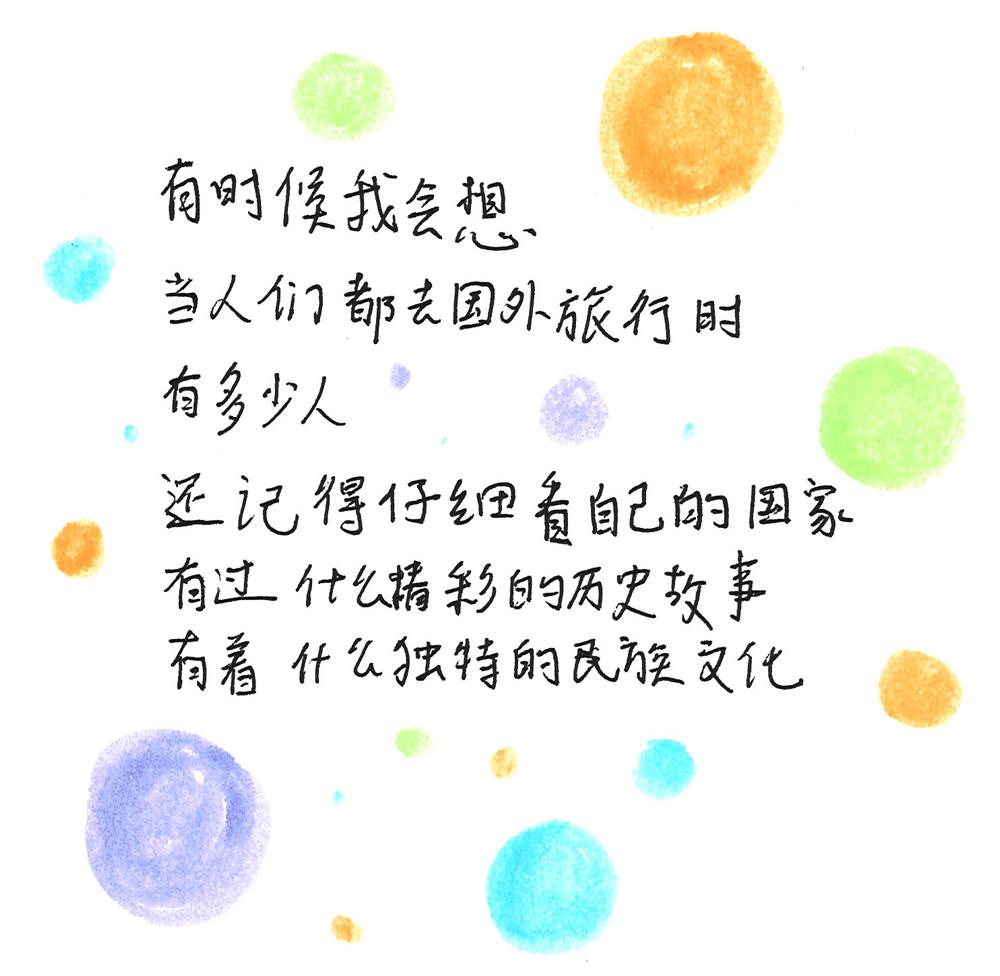 有时候我会想
当人们都去国外旅行时
有多少人
还记得仔细看自己的国家
有过什么精彩的历史故事
有着什么独特的民族文化